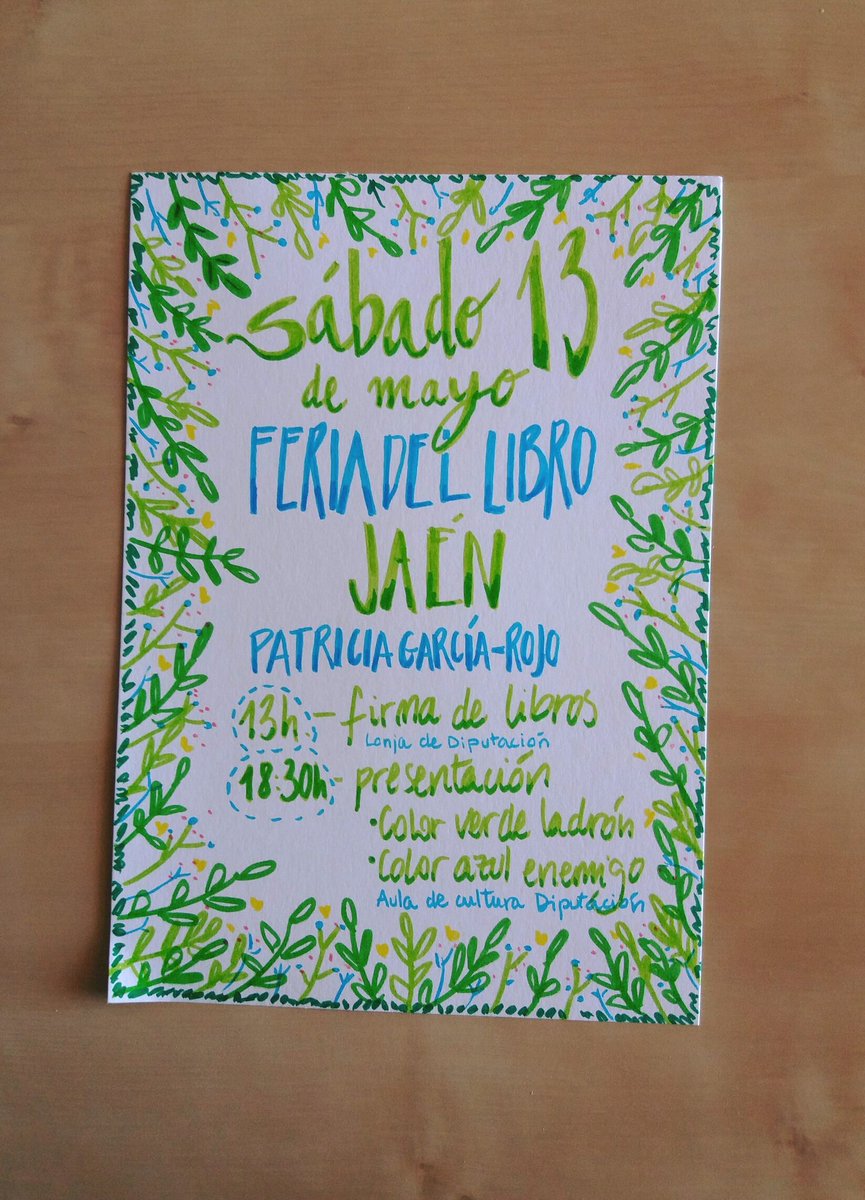 sábado 13
de mayo
FERIA DEL LIBRO
JAÉN
PATRICIA GARCÍA-ROJO
13h - firma de libros
Lonja de Diputación
18:30h - presentación
·Color verde ladrón
·Color azul enemigo
Aula de cultura Diputación